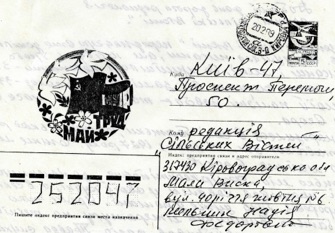 МИР
ТРУД
МАЙ
Куда Київ-47,
Проспект Перемоги
50.
Кому редакція
Сільських Вістей
Индекс предприятия связи и адрес отправителя
317430 Кіровоградська обл
Мала Виска,
вул.
№6
Надія
Федорівна
252047
Пишите индекс предприятия связи места назначения